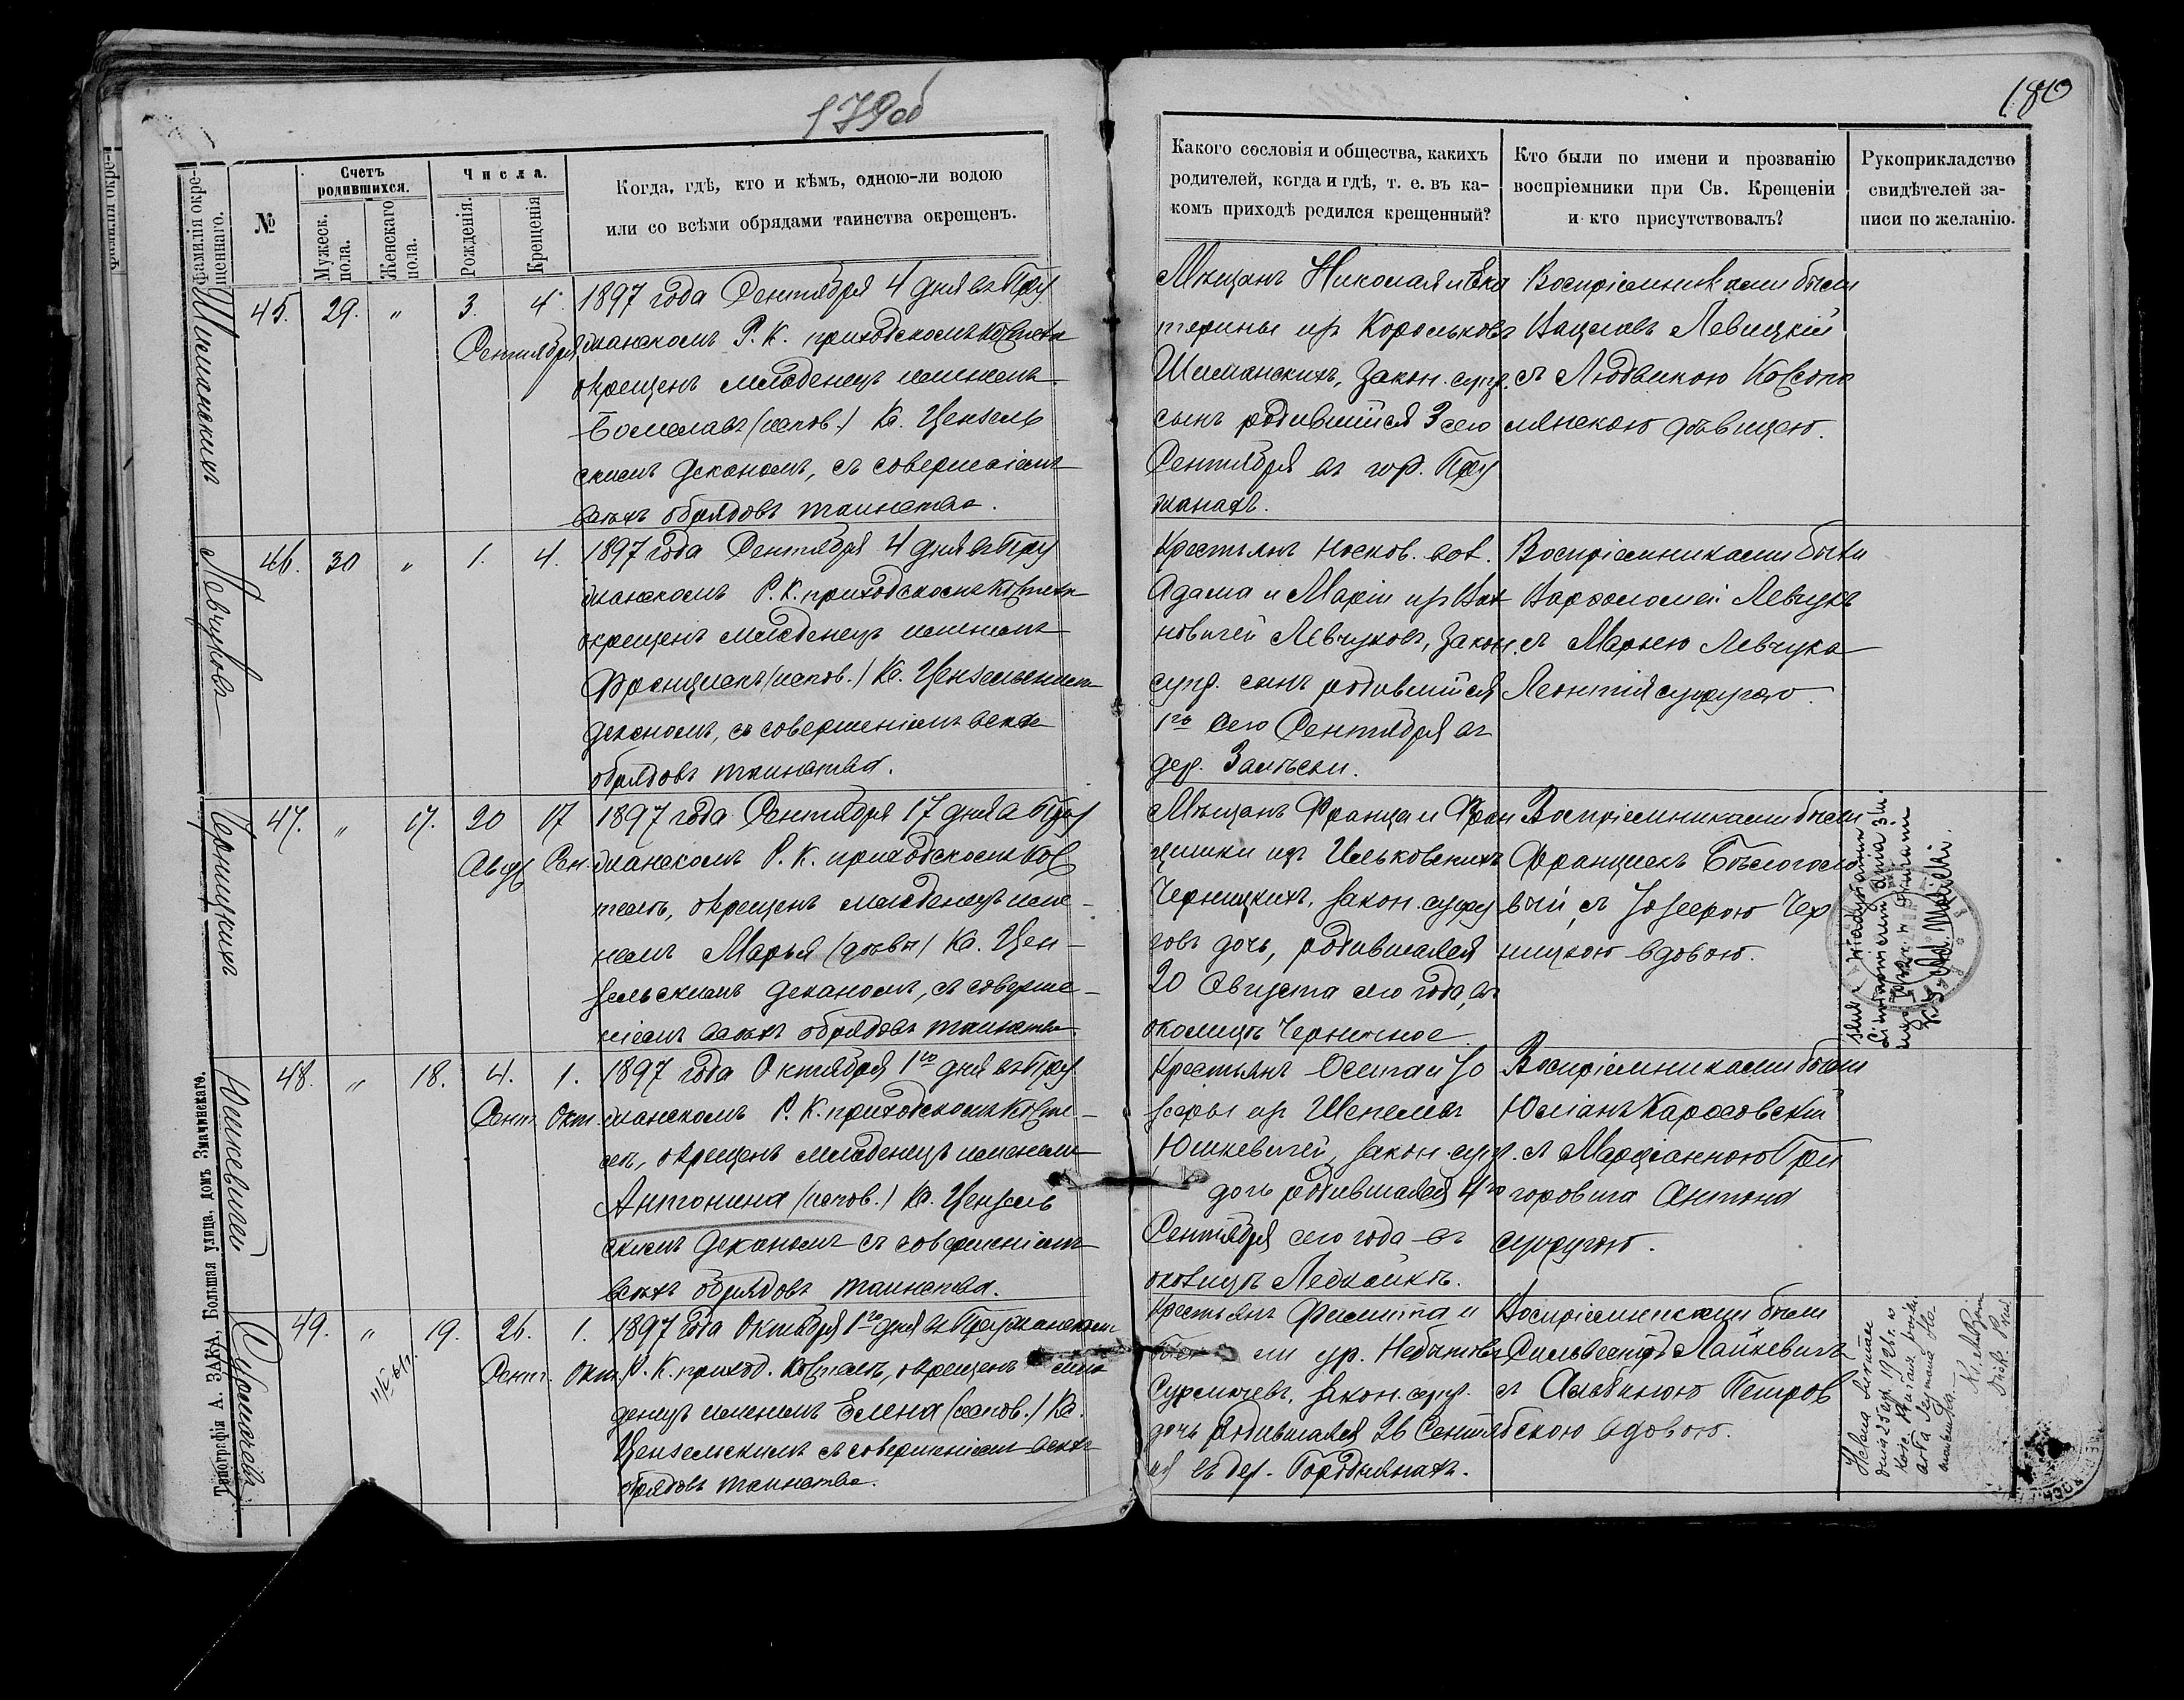 179об
180
Фамилія окре-
щеннаго.
№
Счетъ
родившихся.
Мужеск.
пола.
Женскаго
пола.
Числа.
Рожденія.
Крещенія
Когда, гдѣ, кто и кѣмъ, одною-ли водою
или со всѣми обрядами таинства окрещенъ.
Какого сословія и общества, какихъ
родителей, когда и гдѣ, т. е. въ ка-
комъ приходѣ родился крещенный?
Кто были по имени и прозванію
воспріемники при Св. Крещеніи
и кто присутствовалъ?
Рукоприкладство
свидѣтелей за-
писи по желанію.
Шиманскихъ
45. 29. " 3. 4.
Сентября
1897 года Сентября 4 дня въ Пру
жанскомъ Р. К. приходскомъ Костелѣ
окрещенъ младенецъ именемъ
Болеславъ (испов.) Кс. Цензель
скимъ деканомъ, съ совершеніемъ
всѣхъ обрядовъ таинства.
Мѣщанъ Николая и Ека
терины ур. Корольковъ
Шиманскихъ, закон. супр.
сынъ родившійся 3 сего
Сентября въ гор. Пру
жанахъ.
Воспріемниками были
Вацлавъ Левицкій
съ Людвикою
дѣвицею.
Левчуковъ
46. 30 " 1. 4.
1897 года Сентября 4 дня въ Пру
жанскомъ Р. К. приходскомъ Костелѣ
окрещенъ младенецъ именемъ
Францискъ (испов.) Кс. Цензельскимъ
деканомъ, съ совершеніемъ всѣхъ
обрядовъ таинства.
Крестьянъ Носков. вол.
Адама и Маріи ур.
новичей Левчуковъ, закон.
супр. сынъ родившійся
1го сего Сентября въ
дер. Залѣсьи.
Воспріемниками были
Варфоломей Левчукъ
съ Марьею Левчука
Леонтія супругою.
Черницкихъ
47. " 17. 20 17
Авг. Сен.
1897 года Сентября 17 дня въ Пру
жанскомъ Р. К. приходскомъ Кос
телѣ, окрещенъ младенецъ име-
немъ Марья Кс. Цен-
зельскимъ деканомъ, съ соверше-
ніемъ всѣхъ обрядовъ таинства.
Мѣщанъ Франца и Фран
цишки ур. Ильковскихъ
Черницкихъ, закон. супру
говъ дочь, родившаяся
20 Августа сего года, въ
околицѣ Черничное.
Воспріемниками были
Францискъ Бѣлоголо
вый, съ Іозефою Чер
ницкою вдовою.
Юшкевичей
48. " 18. 4. 1.
Сент. Окт.
1897 года Октября 1го дня въ Пру
жанскомъ Р. К. приходскомъ Косте-
лѣ, окрещенъ младенецъ именемъ
Антонина (испов.) Кс. Цензель
скимъ деканомъ съ совершеніемъ
всѣхъ обрядовъ таинства.
Крестьянъ Осипа и Іо
зефы ур. Шепель
Юшкевичей, закон. супр.
дочь родившаяся 4го
Сентября сего года въ
околицѣ
Воспріемниками были
Юліанъ Каросовскій
съ Марціанною Гри
горовича Антона
супругою.
49. " 19. 26. 1.
Сент. Окт.
1897 года Октября 1го дня въ Пружанскомъ
Р. К. приход. Костелѣ, окрещенъ мла
денецъ именемъ Елена (испов.) Кс.
Цензельскимъ съ совершеніемъ всѣхъ
обрядовъ таинства.
Крестьянъ Филиппа и
ур.
закон. супр.
дочь родившаяся 26 Сентяб
ря въ дер. Городнянахъ.
Воспріемниками были
Сильвестръ Лашкевичъ
съ Альбиною Петров
скою вдовою.
Типографія А. ЗАКА, Большая улица, домъ Змачинскаго.